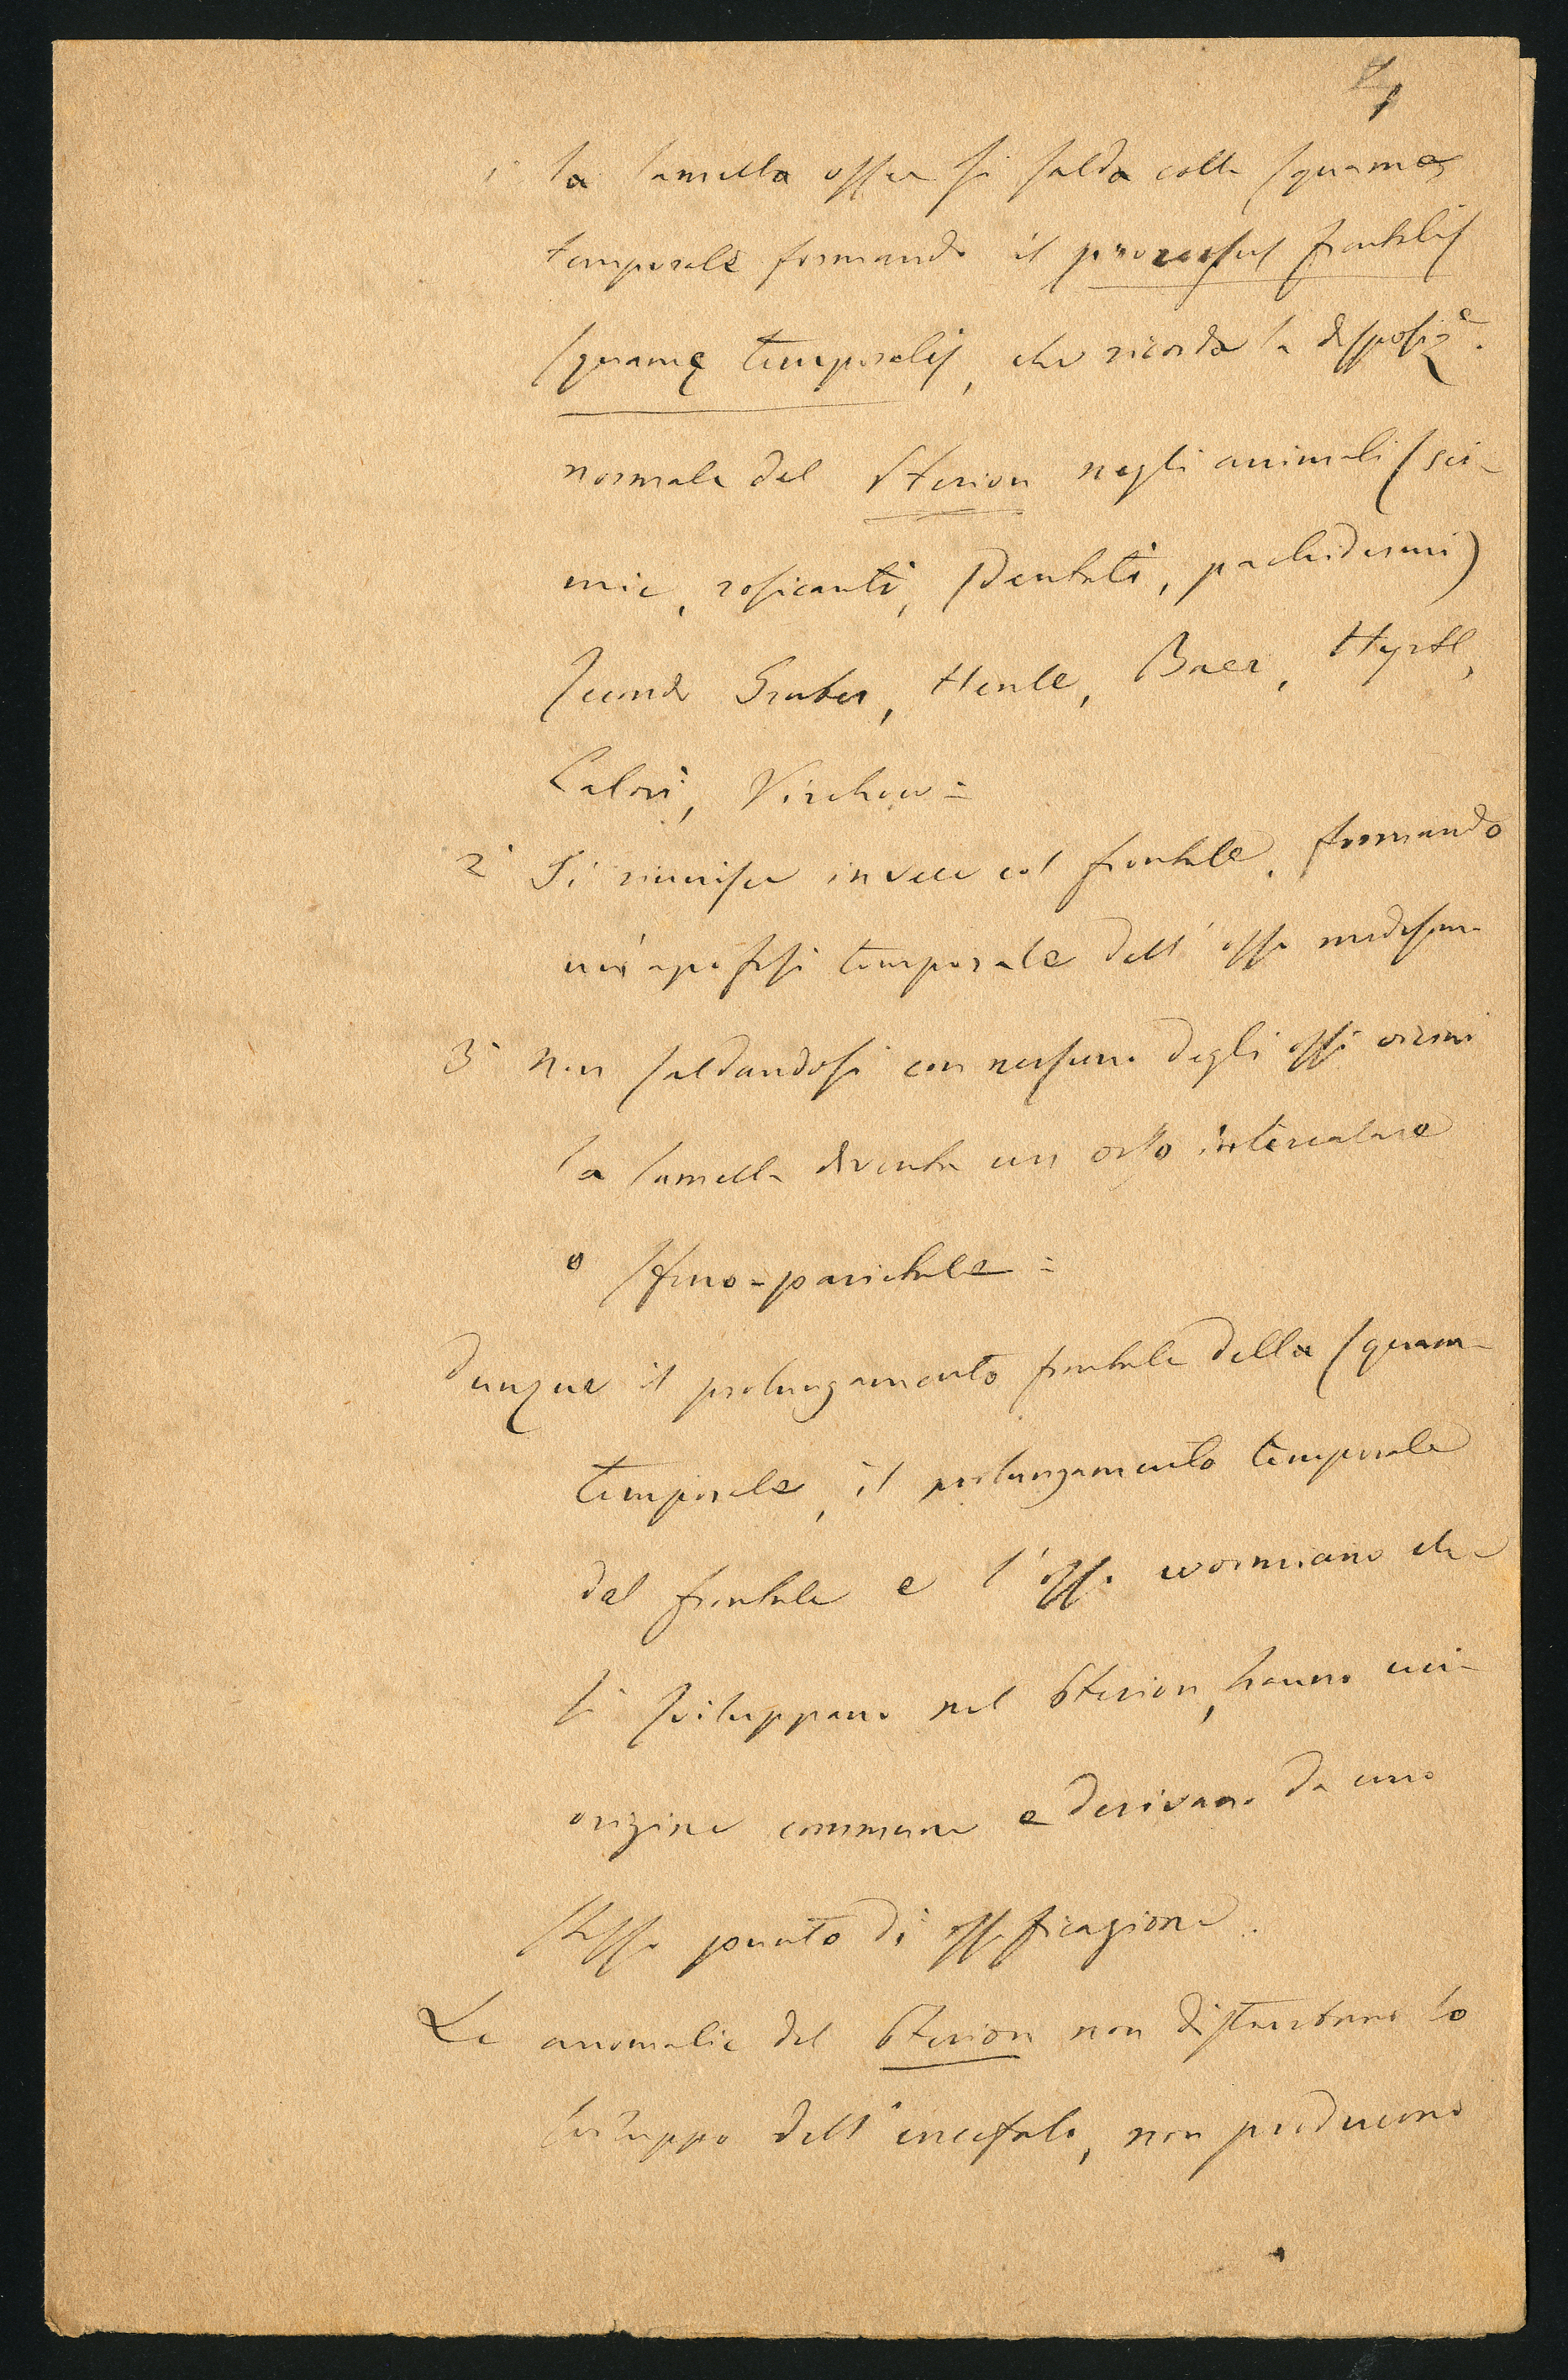 4
1° la lamella ossea si salda colla squama
temporale formando il processus frontalis
squamę temporalis, che ricorda la disposize.
normale del Pterion negli animali (sci-
mie, rosicanti, sdentati, pachidermi)
secondo Gruber, Henle, Baer, Hyrtl,
Calori, Virchow =
2° Si riunisce invece col frontale, formando
un'apofisi temporale dell'osso medesimo
3° Non saldandosi con nessuno degli ossi vicini
la lamella diventa un osso intercalare
o sfeno-parietale =
Dunque il prolungamento frontale della squama
temporale, il prolungamento temporale
del frontale e l'osso wormiano che
si sviluppano nel Pterion, hanno un'
origine comune e derivano da uno
stesso punto di ossificazione.
Le anomalie del Pterion non disturbano lo
sviluppo dell'encefalo, non producono